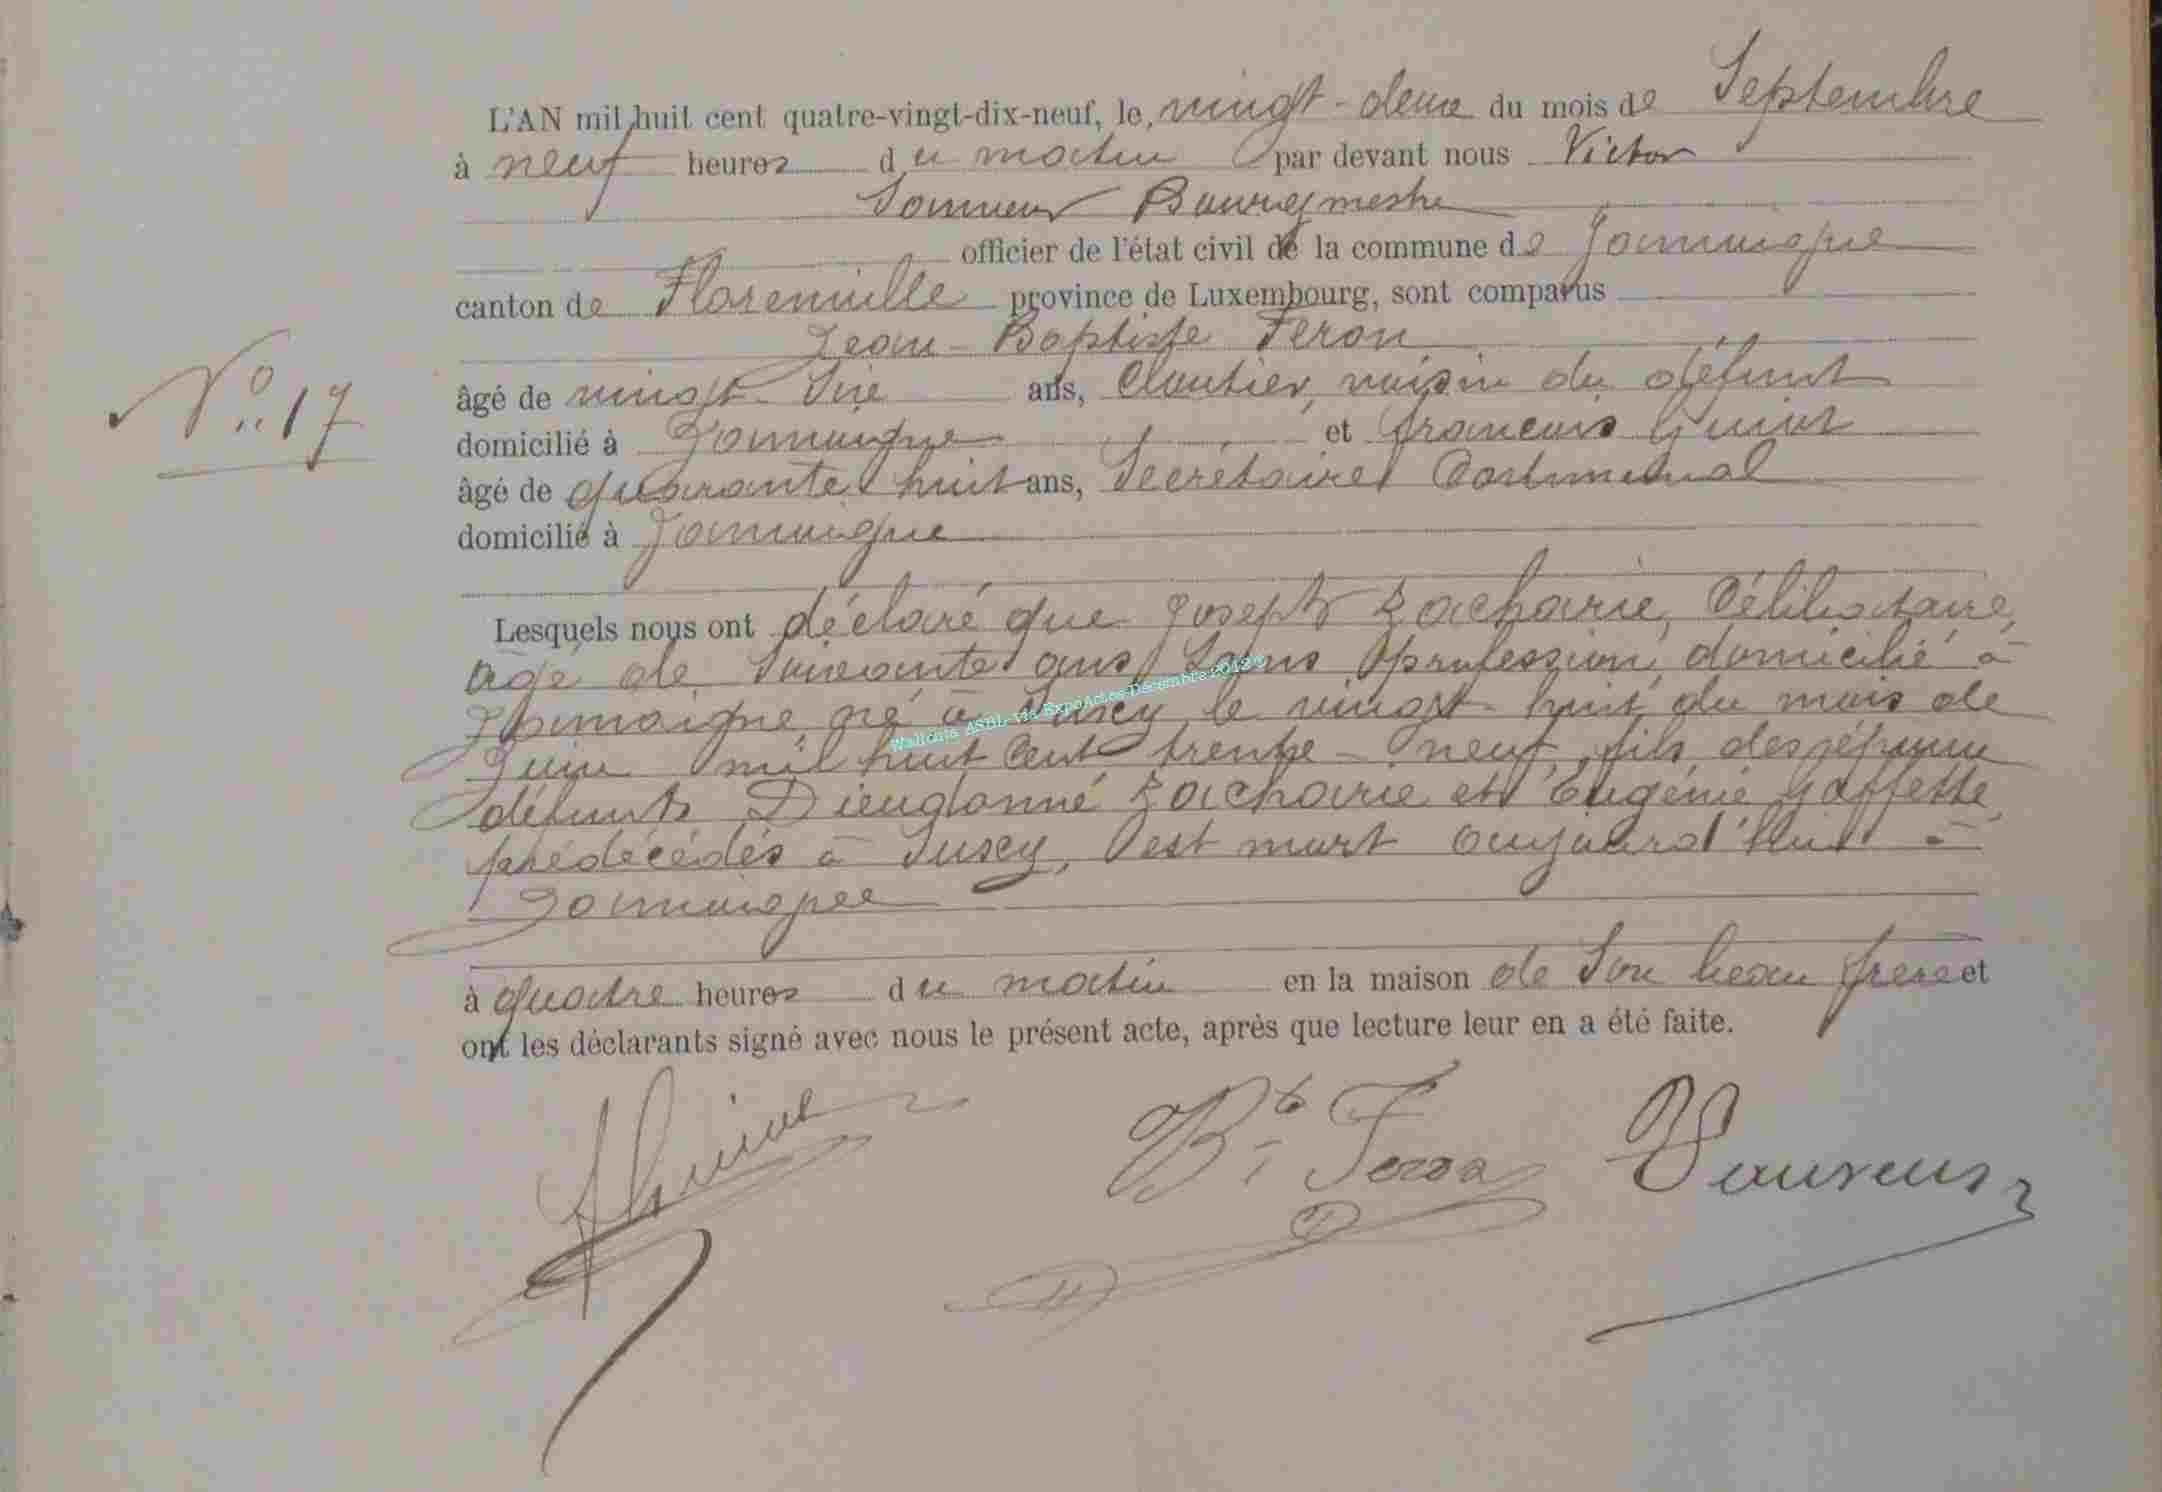 L'AN mil huit cent quatre-vingt-dix-neuf, le, vingt-deux du mois de Septembre
à neuf heures du matin par devant nous Victor
Bourgmestre
officier de l'état civil de la commune de Jamoigne
canton de Florenville province de Luxembourg, sont comparus
Jean-Baptiste Feron
N° 17
âgé de vingt-six ans, Cloutier, voisin du défunt
domicilié à Jamoigne et francois Guiot
âgé de quarante huit ans, Secrétaire Communal
domicilié à Jamoigne
Lesquels nous ont déclaré que Joseph Zacharie, Célibataire,
âgé de soixante ans Sans profession, domicilié à
Jamoigne, né à Suxy, le vingt-huit du mois de
Juin mil huit Cent trente-neuf, fils des
défunts Dieudonné Zacharie et Eugénie Goffette,
prédécédés à Suxy, est mort aujourd'hui à
Jamoigne
à quatre heures du matin en la maison de Son beau frere et
ont les déclarants signé avec nous le présent acte, après que lecture leur en a été faite.
Wallonia ASBL via ExpoActes Décembre 2012©
Guiot
Bte Feron